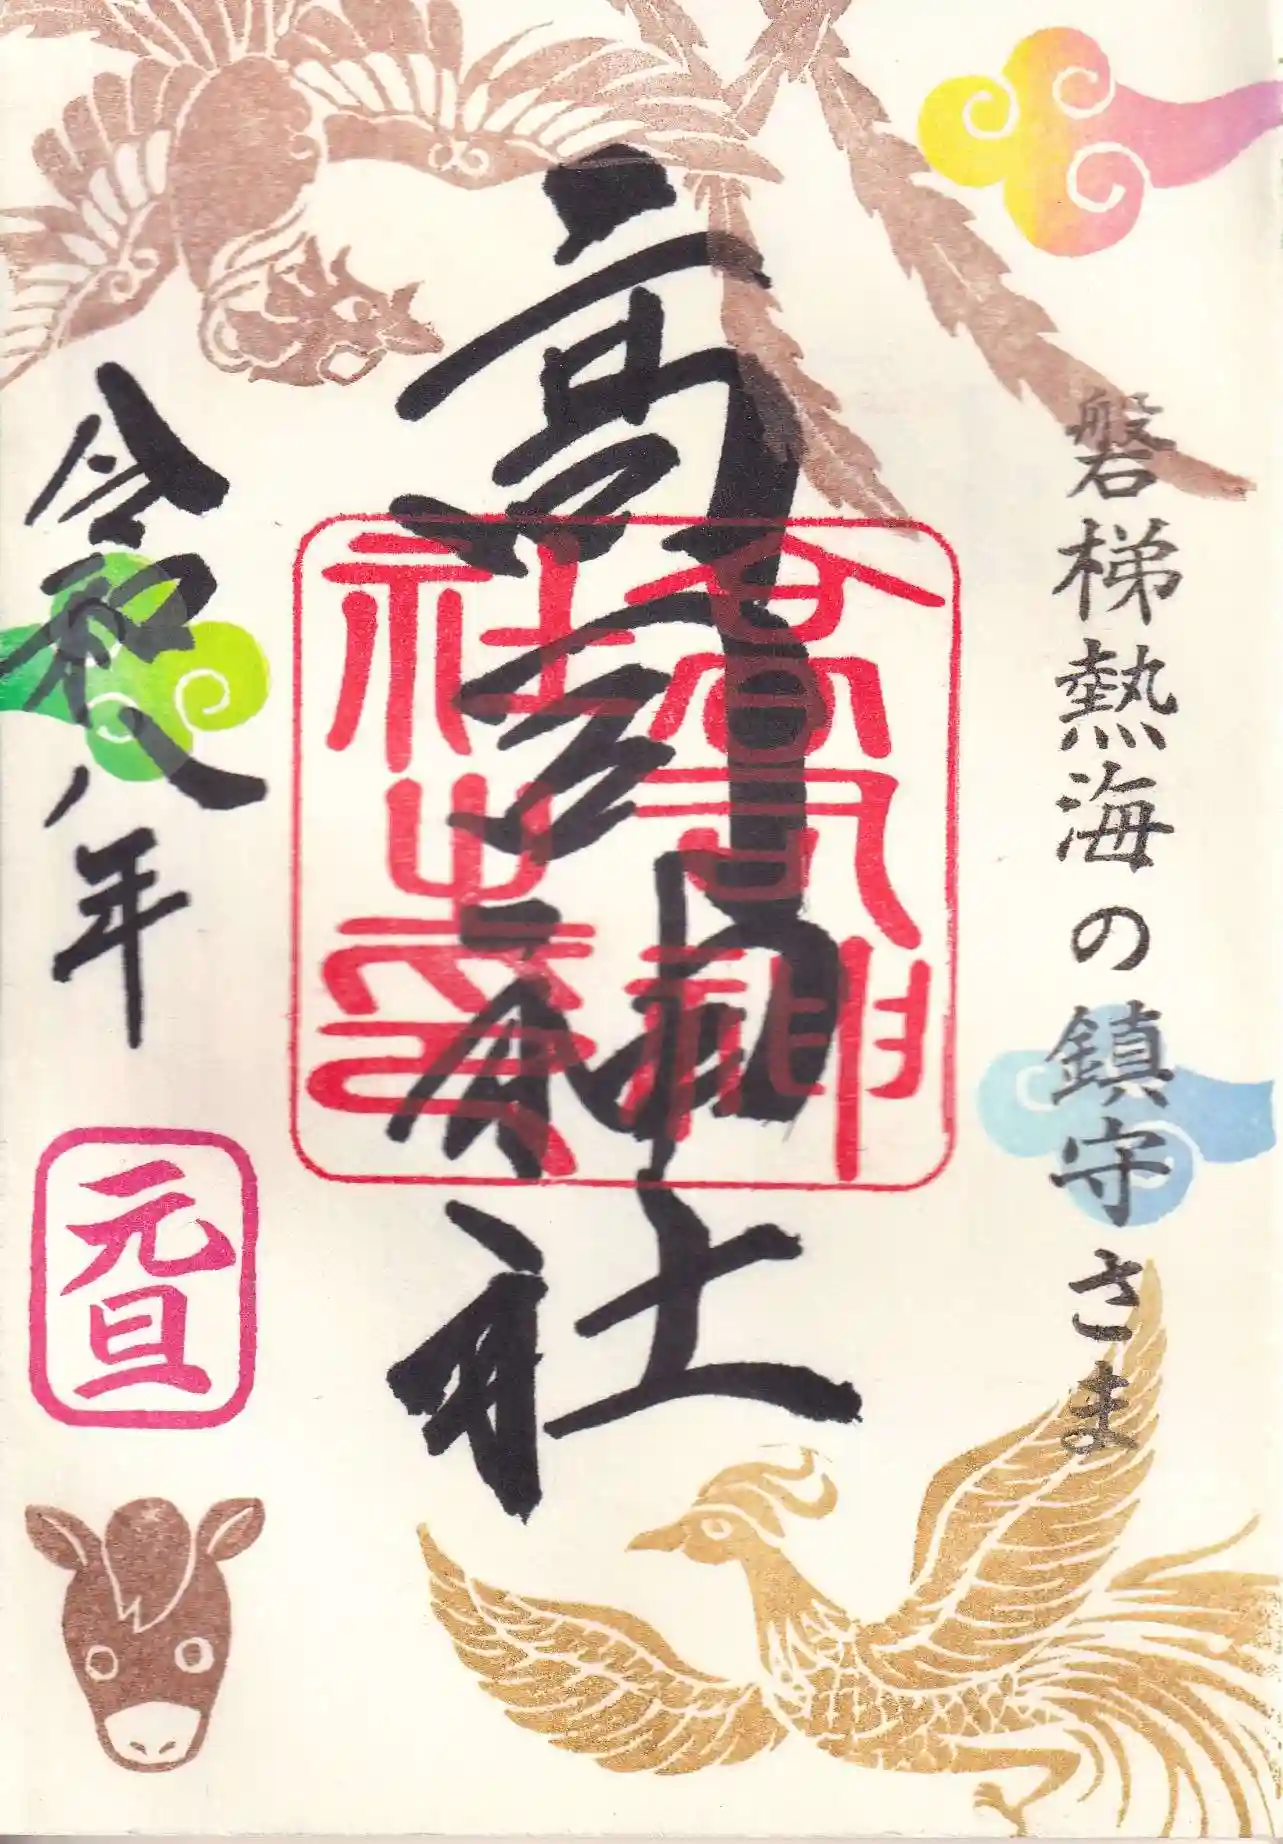 磐梯熱海の鎮守さま
高司神社
高司神
社之印
令和八年
元旦